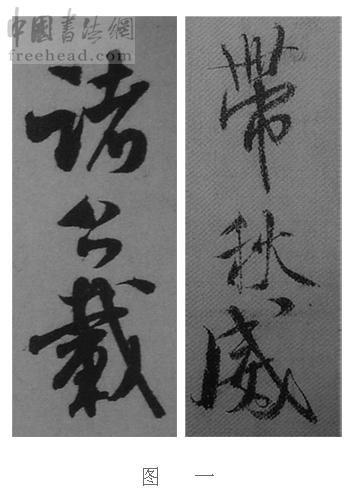 中國書法網
freehead.com
諸公載
帶秋威
图 一